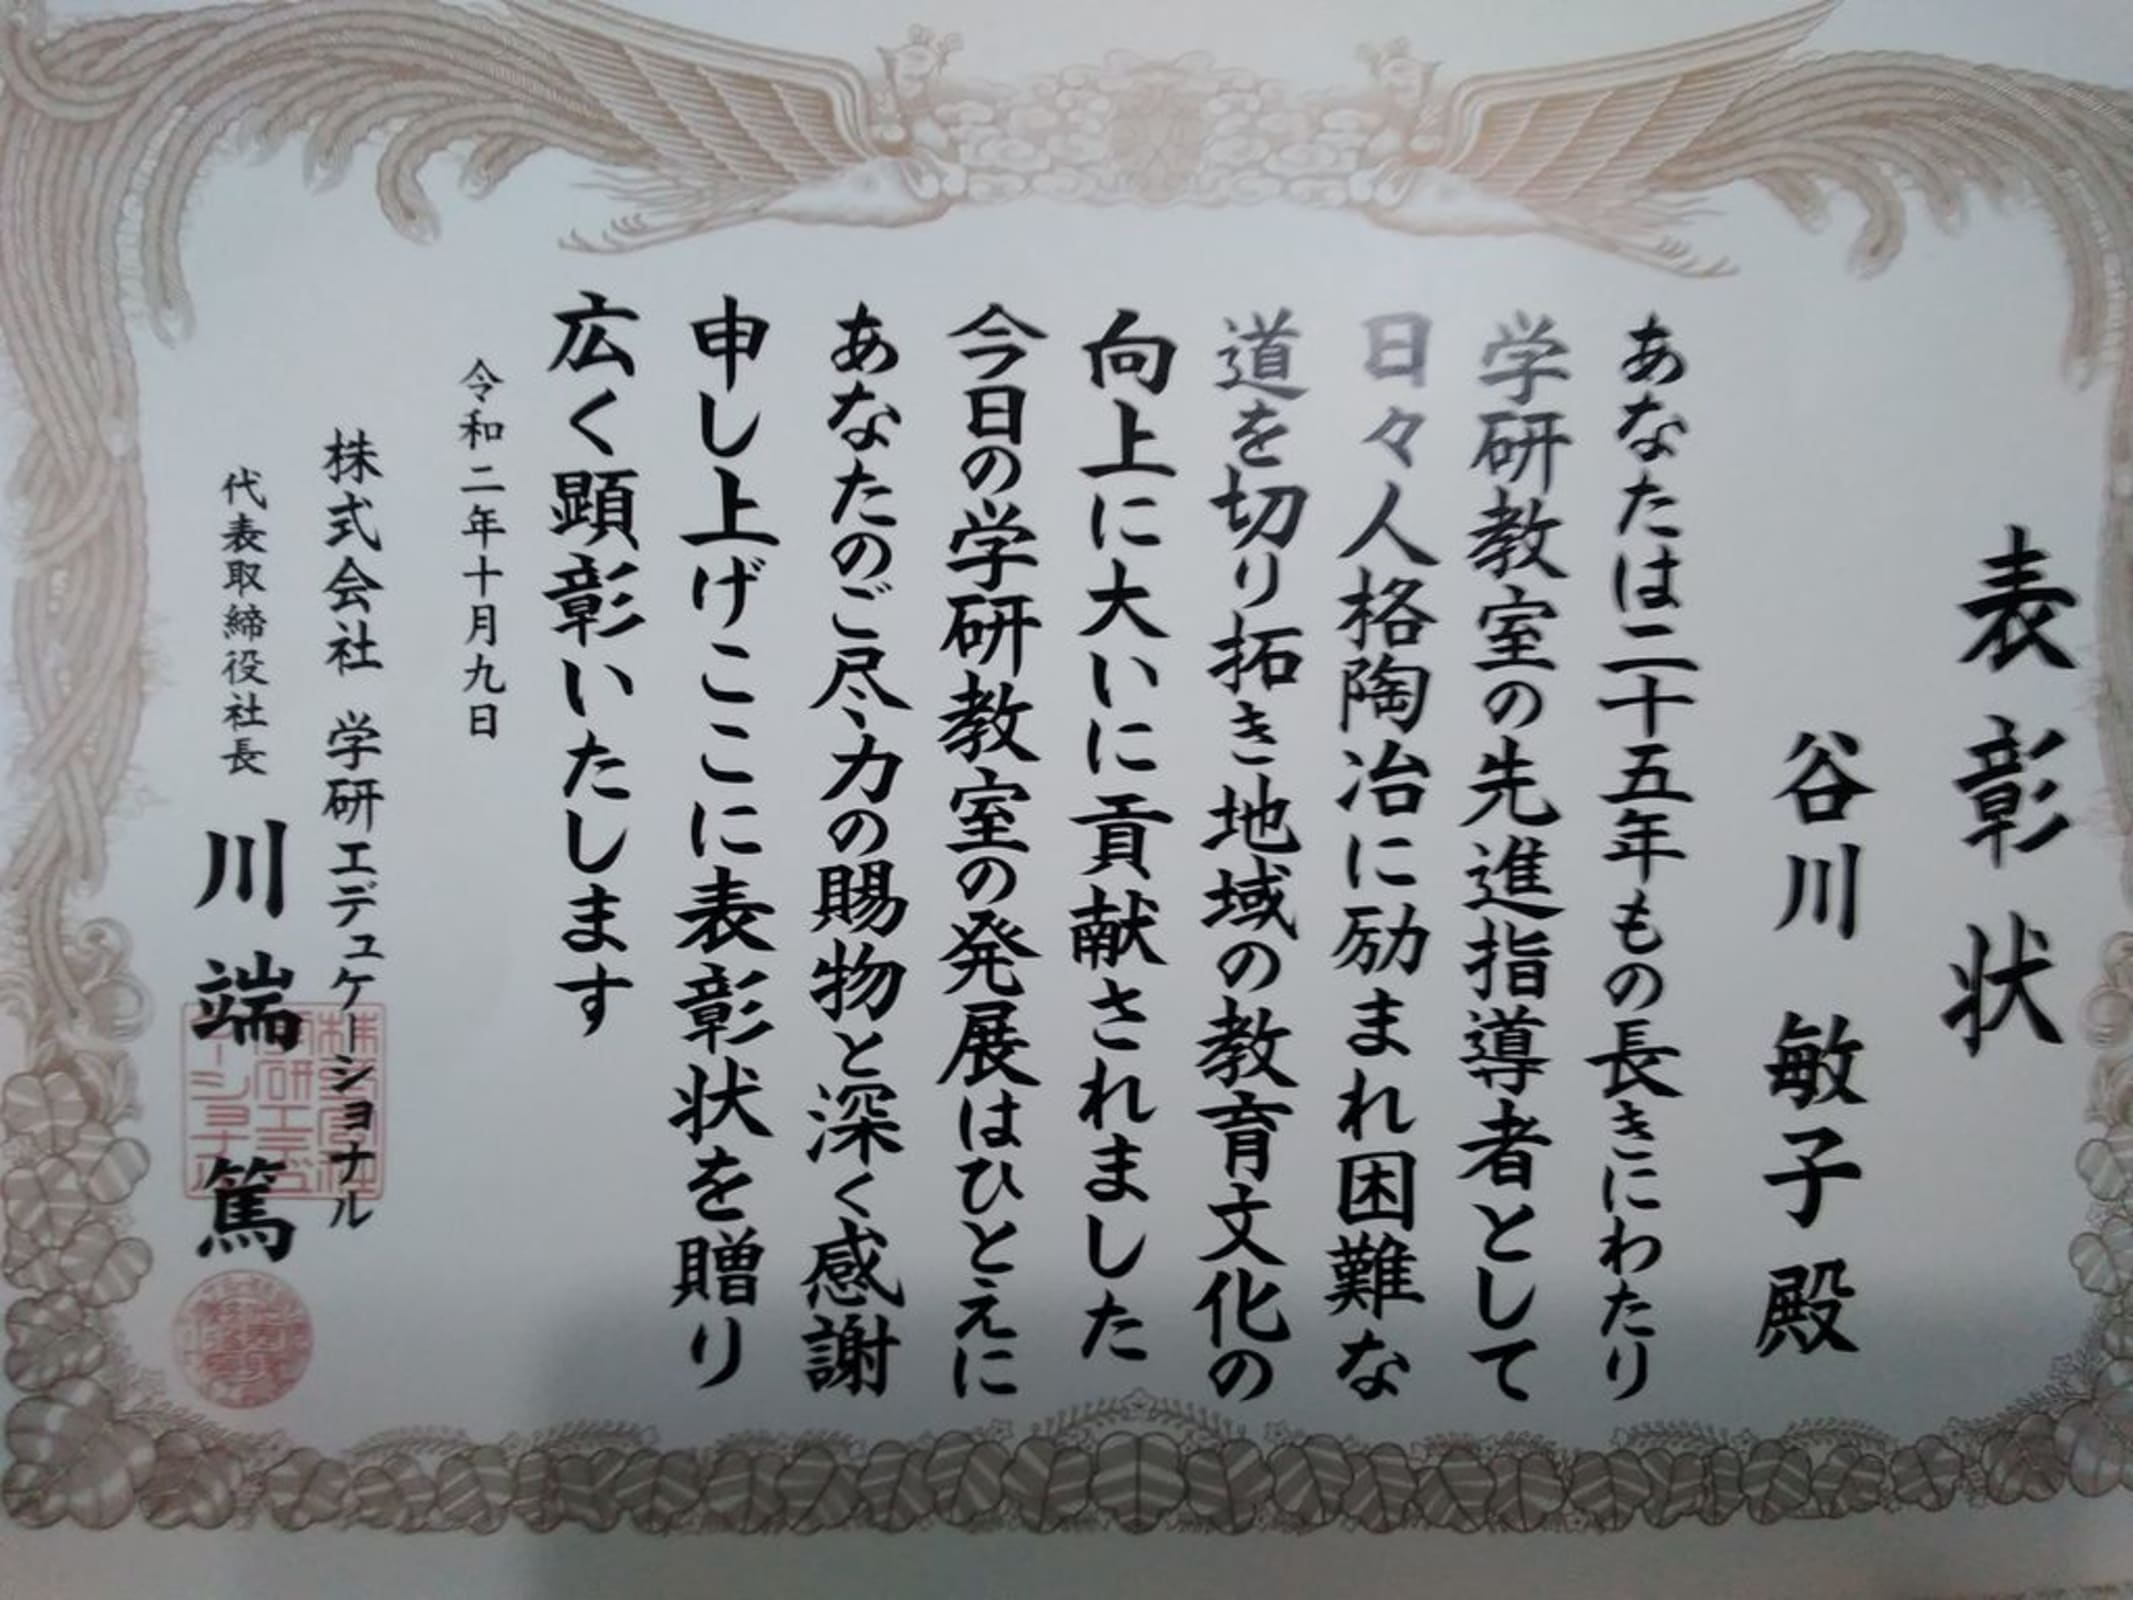 表彰状
谷川 敏子 殿
あなたは二十五年もの長きにわたり
学研教室の先進指導者として
日々人格陶冶に励まれ困難な
道を切り拓き地域の教育文化の
向上に大いに貢献されました
今日の学研教室の発展はひとえに
あなたのご尽力の賜物と深く感謝
申し上げここに表彰状を贈り
広く顕彰いたします
令和二年十月九日
株式会社 学研エデュケーショナル
代表取締役社長 川端 篤